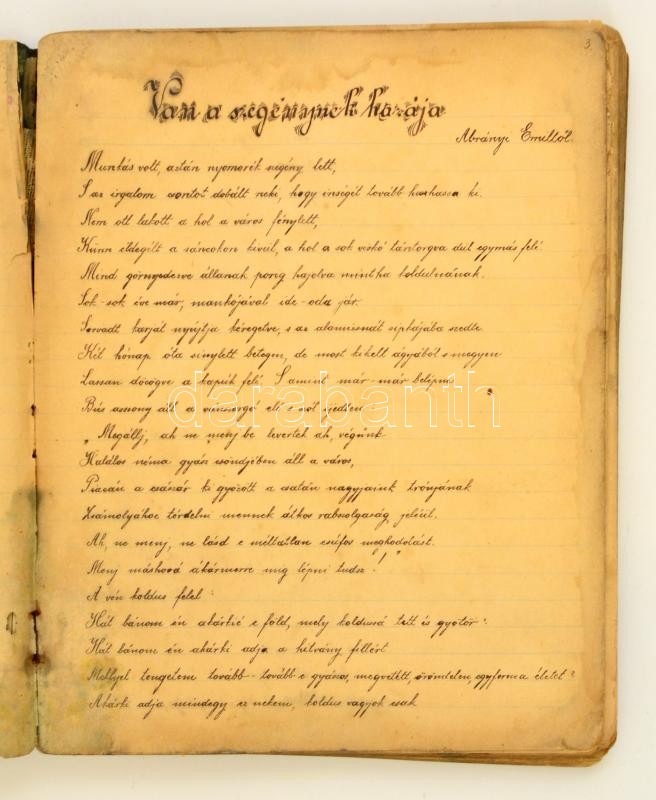 3.
Van a szegénynek hazája
Ábrányi Emiltől.
Munkás volt, aztán nyomorék szegény lett,
S az irgalom csontot dobált neki, hogy inségét tovább húzhassa ki.
Nem ott lakott a hol a város fénylett,
Künn éldegélt a sáncokon kivül, a hol a sok viskó tántorgva dül egymás felé.
Mind görnyedezve állanak porig hajolva mintha koldulnának.
Sok-sok éve már, mankójával ide-oda jár.
Sorvadt karját nyújtja kéregetve, s az alamizsnát sipkájába szedte.
Két hónap óta sinylett betegen, de most kikelt ágyából s megyen
Lassan döcögve a kapúk felé, S amint már-már belépne
Bús asszony áll a elé s szól ijedten:
„Megállj, ah ne menj be levertek ah, végünk
Halálos néma gyász csöndjében áll a város,
Piacán a császár ki győzött a csatán nagyjaink trónjának
Zsámolyához térdelni mennek átkos rabszolgaság jeléül.
Ah, ne menj, ne lásd e méltatlan csúfos meghodolást.
Menj máshová akármerre mig lépni tudsz!"
A vén koldus felel:
Hát bánom én akárkié e föld, mely koldussá tett és gyötör?
Hát bánom én akárki adja a hitvány fillért
Mellyel tengetem tovább-tovább e gyászos, megvetett, örömtelen, egyforma életet?
Akárki adja mindegy ez nekem, koldus vagyok csak
darabanth